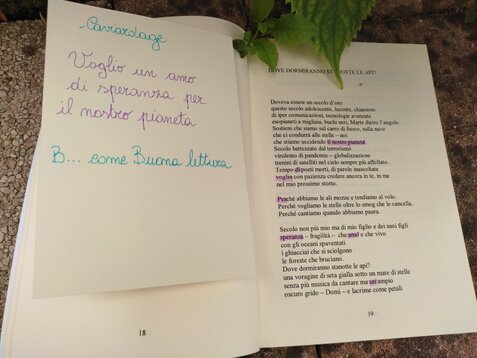 Caviardage
Voglio un amo
di speranza per
il nostro pianeta
B... come Buona lettura
18
DOVE DORMIRANNO STANOTTE LE API?
Doveva essere un secolo d'oro
questo secolo adolescente, lucente, chiassoso
di iper comunicazioni, tecnologie avanzate
esopianeti a migliaia, buchi neri, Marte dietro l'angolo.
Sostieni che siamo sul carro di fuoco, sulla nave
che ci condurrà alle stelle – noi
che stiamo uccidendo il nostro pianeta
Secolo battezzato dal terrorismo
virulento di pandemie – globalizzazione
trenini di satelliti nel cielo sempre più affollato.
Tempo di poeti morti, di parole inascoltate
voglio con pazienza credere ancora in te, in me
nel mio prossimo storto.
Perché abbiamo le ali mozze e tendiamo al volo.
Perché vogliamo le stelle oltre lo smog che le cancella.
Perché cantiamo quando abbiamo paura.
Secolo non più mio ma di mio figlio e dei suoi figli
speranza – fragilità – che amo e che vivo
con gli oceani spaventati
i ghiacciai che si sciolgono
le foreste che bruciano.
Dove dormiranno stanotte le api?
una voragine di seta gialla sotto un mare di stelle
senza più musica da cantare ma un ampio
oscuro grido – Domi – e lacrime come petali
19